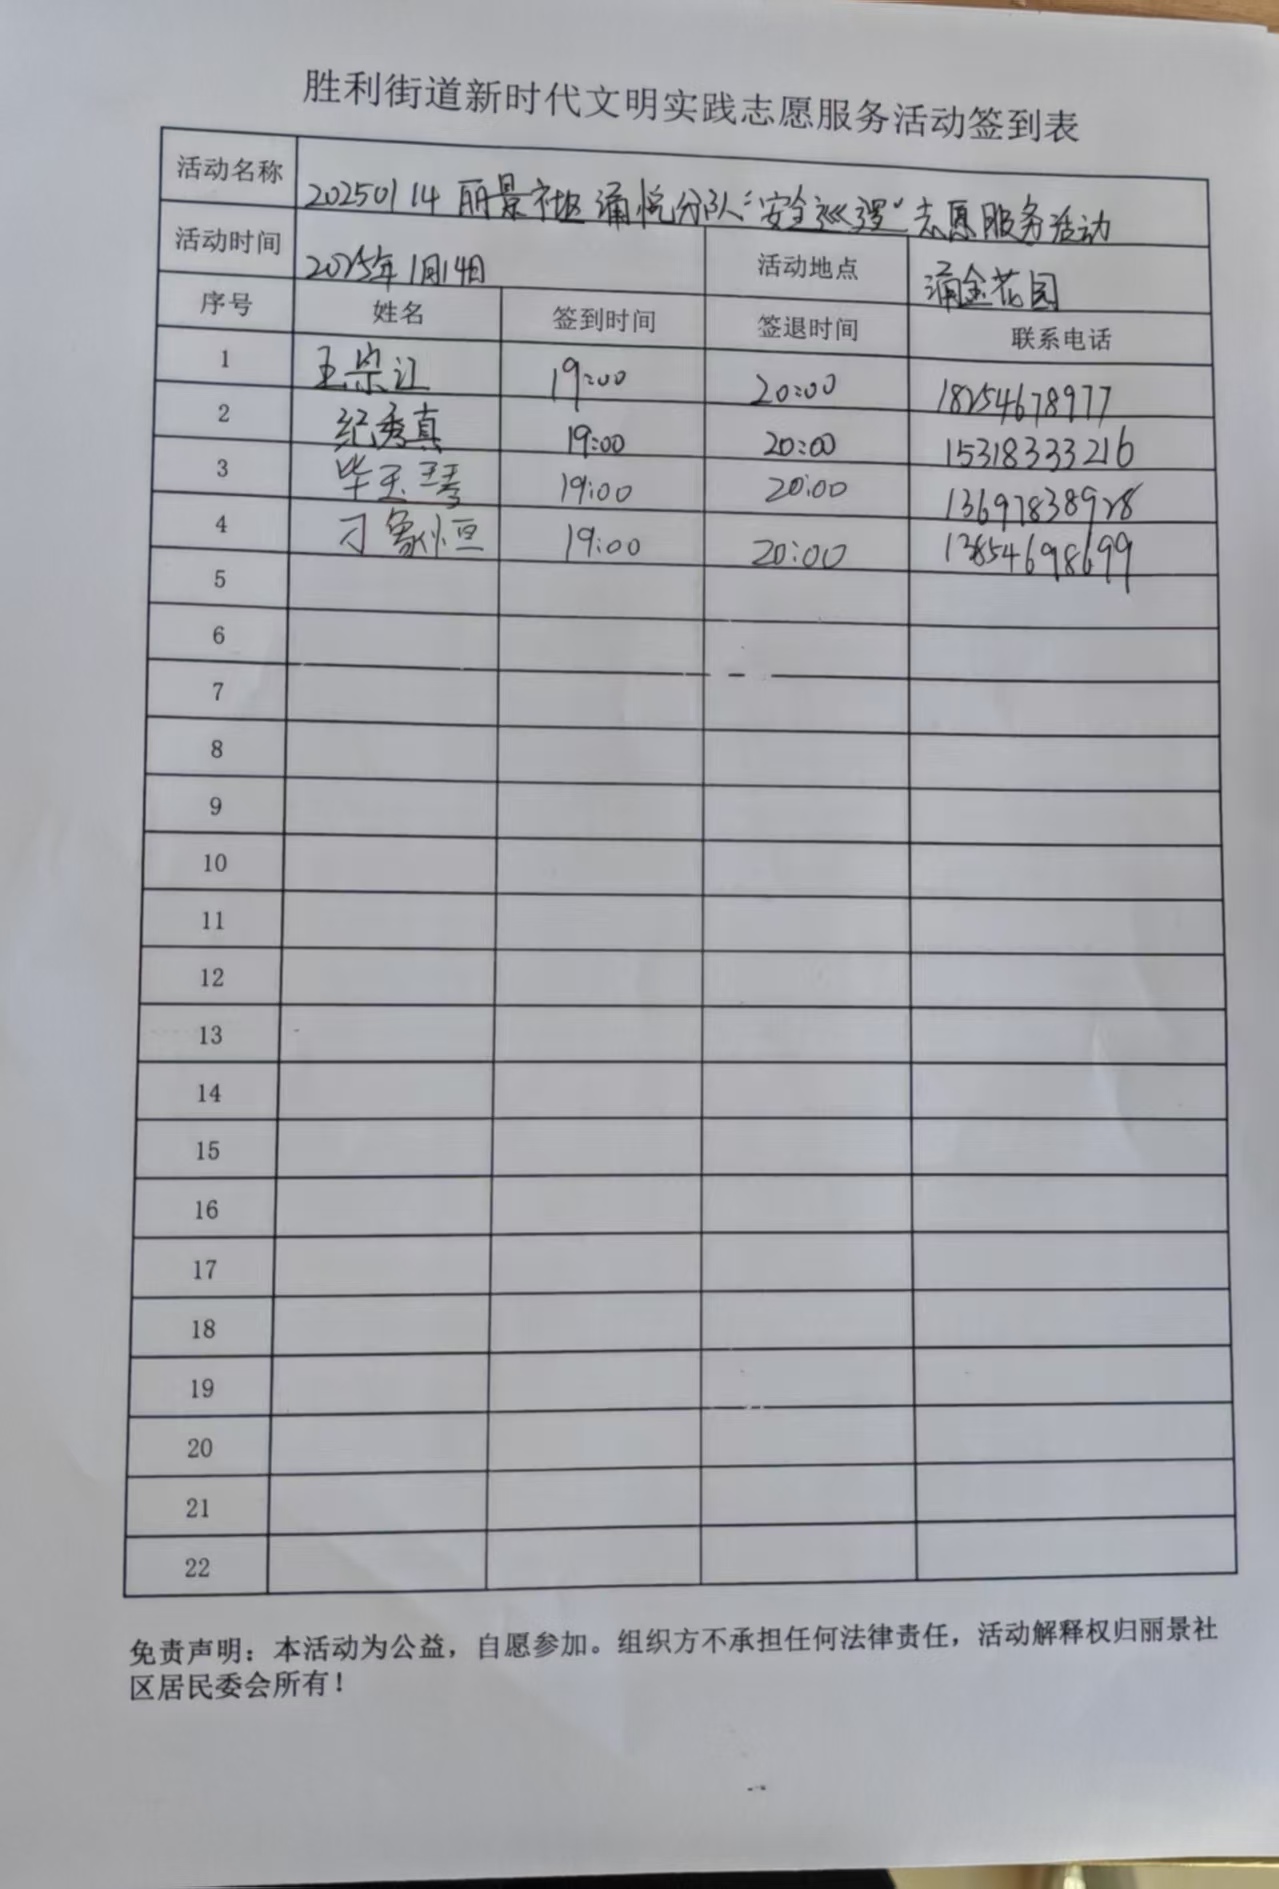 胜利街道新时代文明实践志愿服务活动签到表
活动名称 20250114 丽景社区涌悦分队“安全巡逻”志愿服务活动
活动时间 2025年1月14日 活动地点 涌金花园
序号 姓名 签到时间 签退时间 联系电话
1 王宗江 19:00 20:00 18254678977
2 纪秀真 19:00 20:00 15318333216
3 毕玉琴 19:00 20:00 13697838928
4 刁象恒 19:00 20:00 13854698699
5
6
7
8
9
10
11
12
13
14
15
16
17
18
19
20
21
22
免责声明：本活动为公益，自愿参加。组织方不承担任何法律责任，活动解释权归丽景社
区居民委会所有！